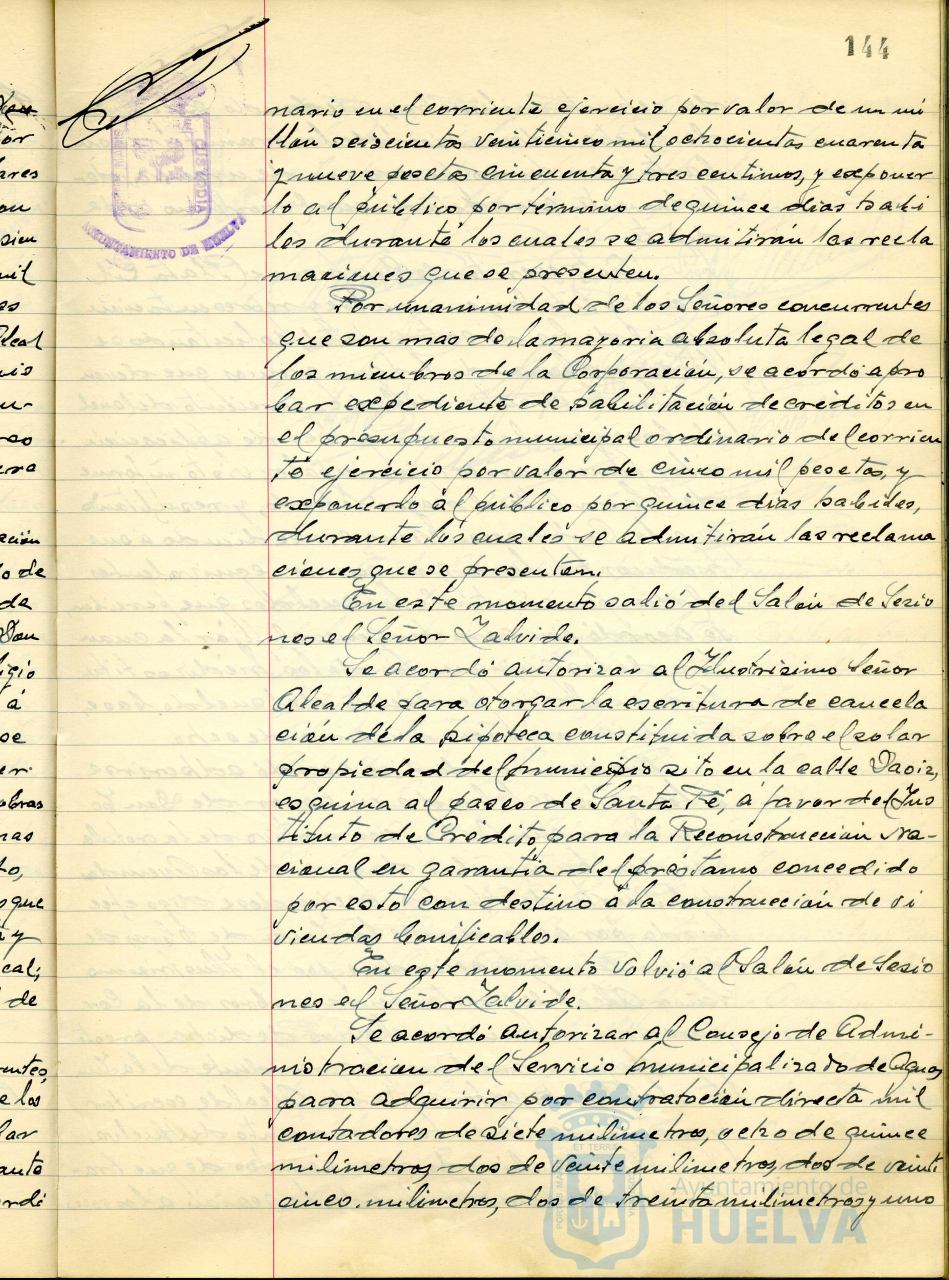 144
nario en el corriente ejercicio por valor de un mi
llón seiscientos veinticinco mil ochocientas cuarenta
y nueve pesetas cincuenta y tres centimos, y exponer
lo al público por término de quince dias habi
les durante los cuales se admitirán las recla
maciones que se presenten.
Por unanimidad de los Señores concurrentes
que son mas de la mayoria absoluta legal de
los miembros de la Corporación, se acordó apro
bar expediente de habilitación de créditos en
el presupuesto municipal ordinario del corrien
te ejercicio por valor de cinco mil pesetas, y
exponerlo al público por quince dias habiles,
durante los cuales se admitirán las reclama
ciones que se presenten.
En este momento salió del Salón de Sesio
nes el Señor Zalvide.
Se acordó autorizar al Ilustrisimo Señor
Alcalde para otorgar la escritura de cancela
ción de la hipoteca constituida sobre el solar
propiedad del municipio sito en la calle Daoiz,
esquina al paseo de Santa Fé, á favor del Ins
tituto de Crédito para la Reconstrucción Na-
cional en garantia del préstamo concedido
por esto con destino á la construcción de vi
viendas bonificables.
En este momento volvió al Salón de Sesio
nes el Señor Zalvide.
Se acordó autorizar al Consejo de Admi-
nistracion del Servicio municipalizado de Aguas
para adquirir por contratación directa mil
contadores de siete milimetros, ocho de quince
milimetros, dos de veinte milimetros, dos de veinti
cinco milimetros, dos de treinta milimetros y uno
AYUNTAMIENTO DE HUELVA
CUSTODIA
Ayuntamiento de
HUELVA